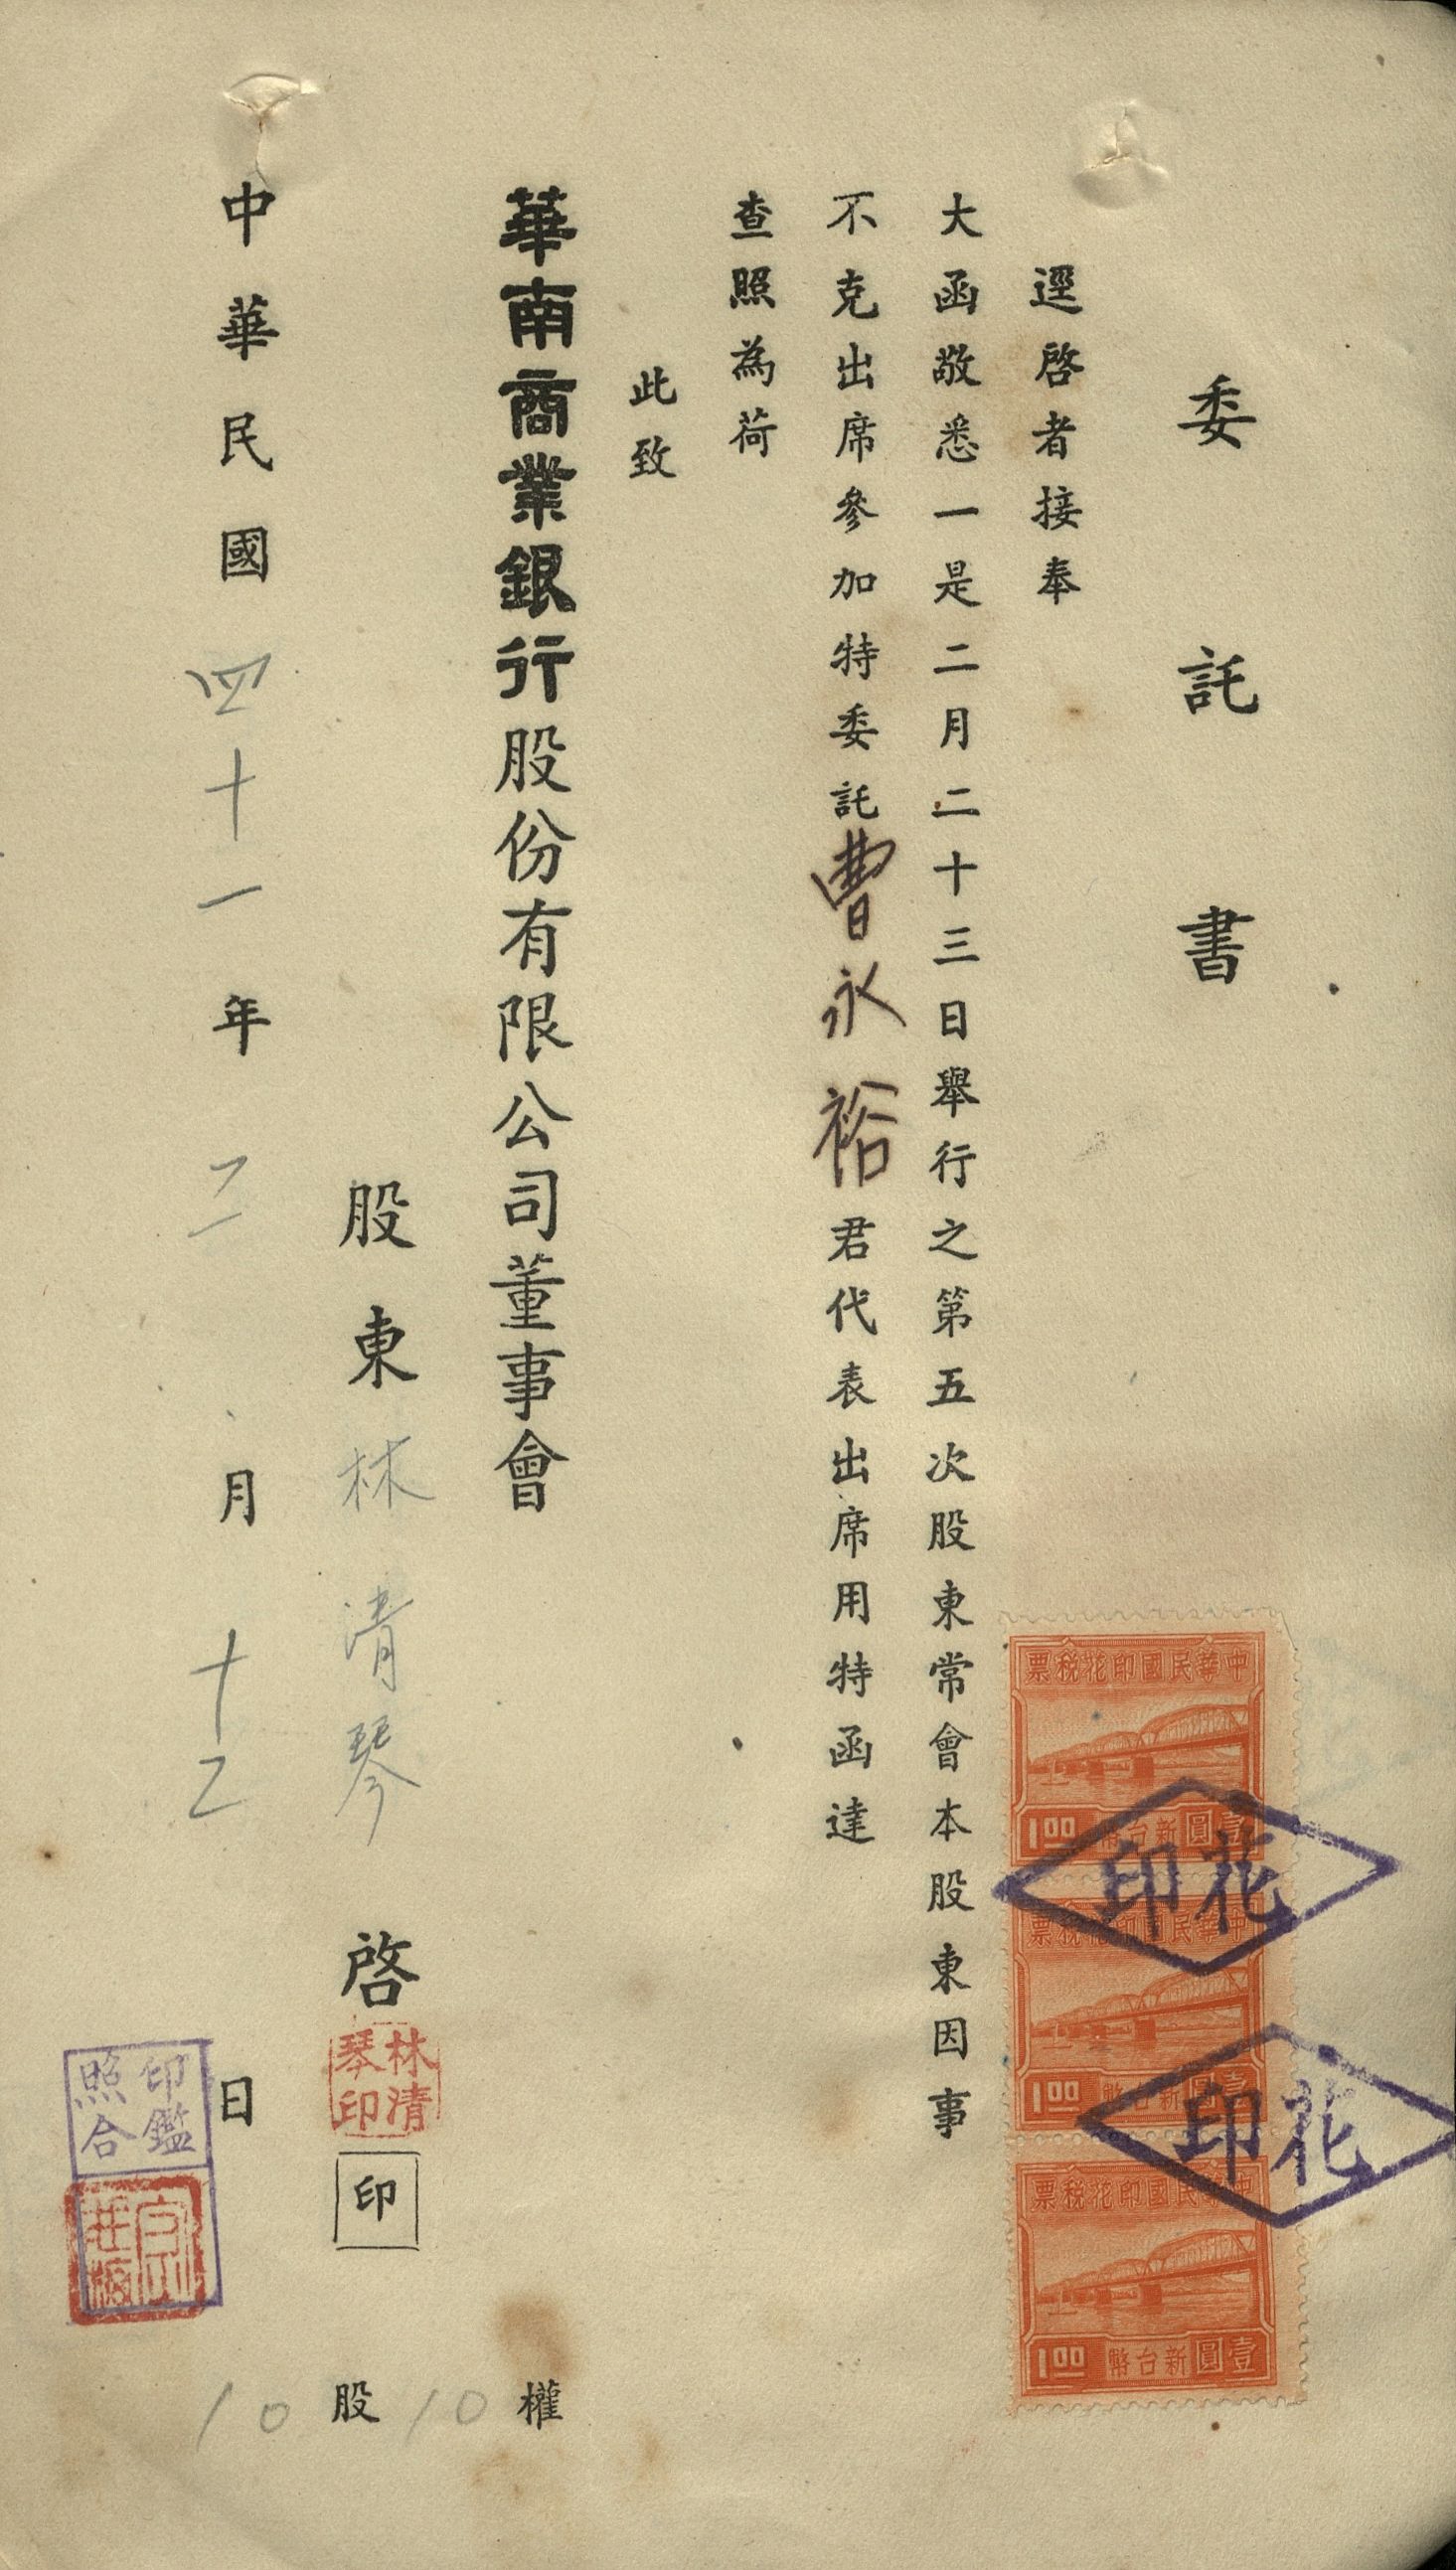 委託書
逕啓者接奉
大函敬悉一是二月二十三日舉行之第五次股東常會本股東因事
不克出席參加特委託曹永裕君代表出席用特函達
查照為荷
此致
華南商業銀行股份有限公司董事會
股東林清琴啓
林清琴印
印
中華民國四十一年二月十二日
印鑑照合
10股10權
中華民國印花稅票
壹圓新台幣
1.00
花印
中華民國印花稅票
壹圓新台幣
1.00
花印
中華民國印花稅票
壹圓新台幣
1.00